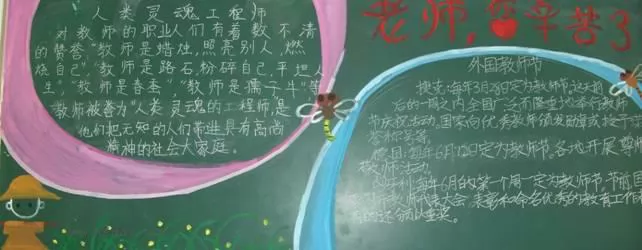 老师,辛苦了
人类灵魂工程师
对教师的职业人们有着数不清
的赞誉"教师是蜡烛,照亮别人,燃
烧自己"教师是路石,粉碎自己,平坦人
生。"教师是春蚕""教师是孺子牛"等
教师被誉为"人类灵魂的工程师,是
他们把无知的人们带进具有高尚
精神的社会大家庭。
外国教师节
捷克:每年3月28日定为教师节,这天前
后的一周之内全国广泛而隆重地举行教师
节庆祝活动。国家向优秀教师颁发勋章或授予
荣称号等。
德国:每年6月12日定为教师节。各地开展尊师
敬师活动。
每年6月的第一个周一定为教师节,节前国
教师代表大会,表彰和命名优秀的教育工作